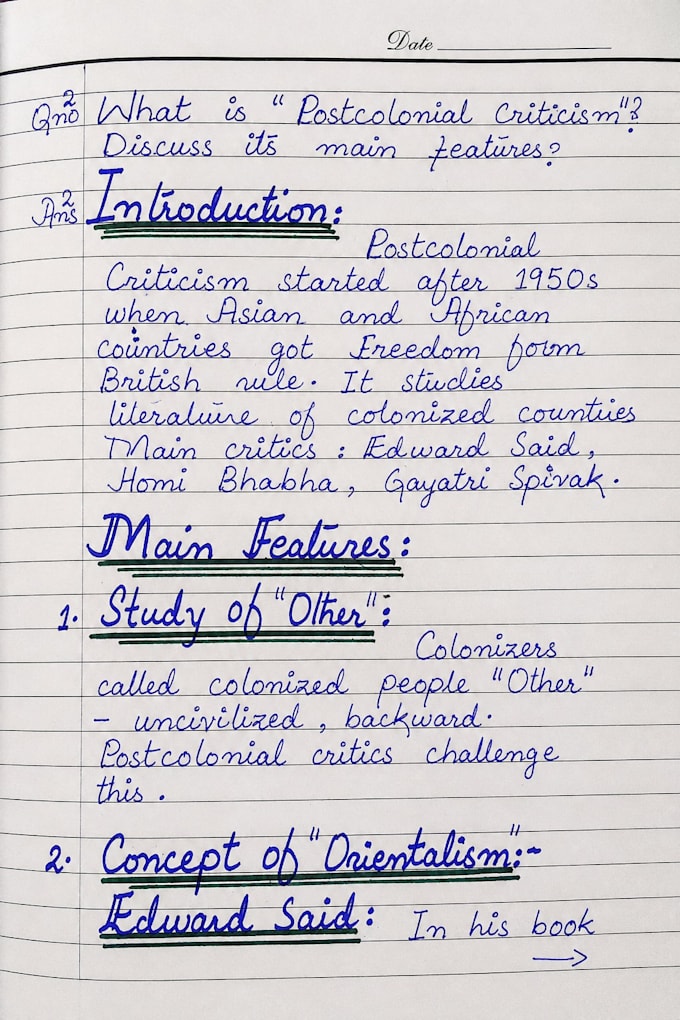 Date
Qno 2 What is "Postcolonial Criticism"?
Discuss its main features?
Ans 2 Introduction:
Postcolonial
Criticism started after 1950s
when Asian and African
countries got Freedom form
British rule. It studies
literature of colonized counties
Main critics : Edward Said,
Homi Bhabha, Gayatri Spivak.
Main Features:
1. Study of "Other":
Colonizers
called colonized people "Other"
- uncivilized, backward.
Postcolonial critics challenge
this.
2. Concept of "Orientalism":-
Edward Said: In his book
→